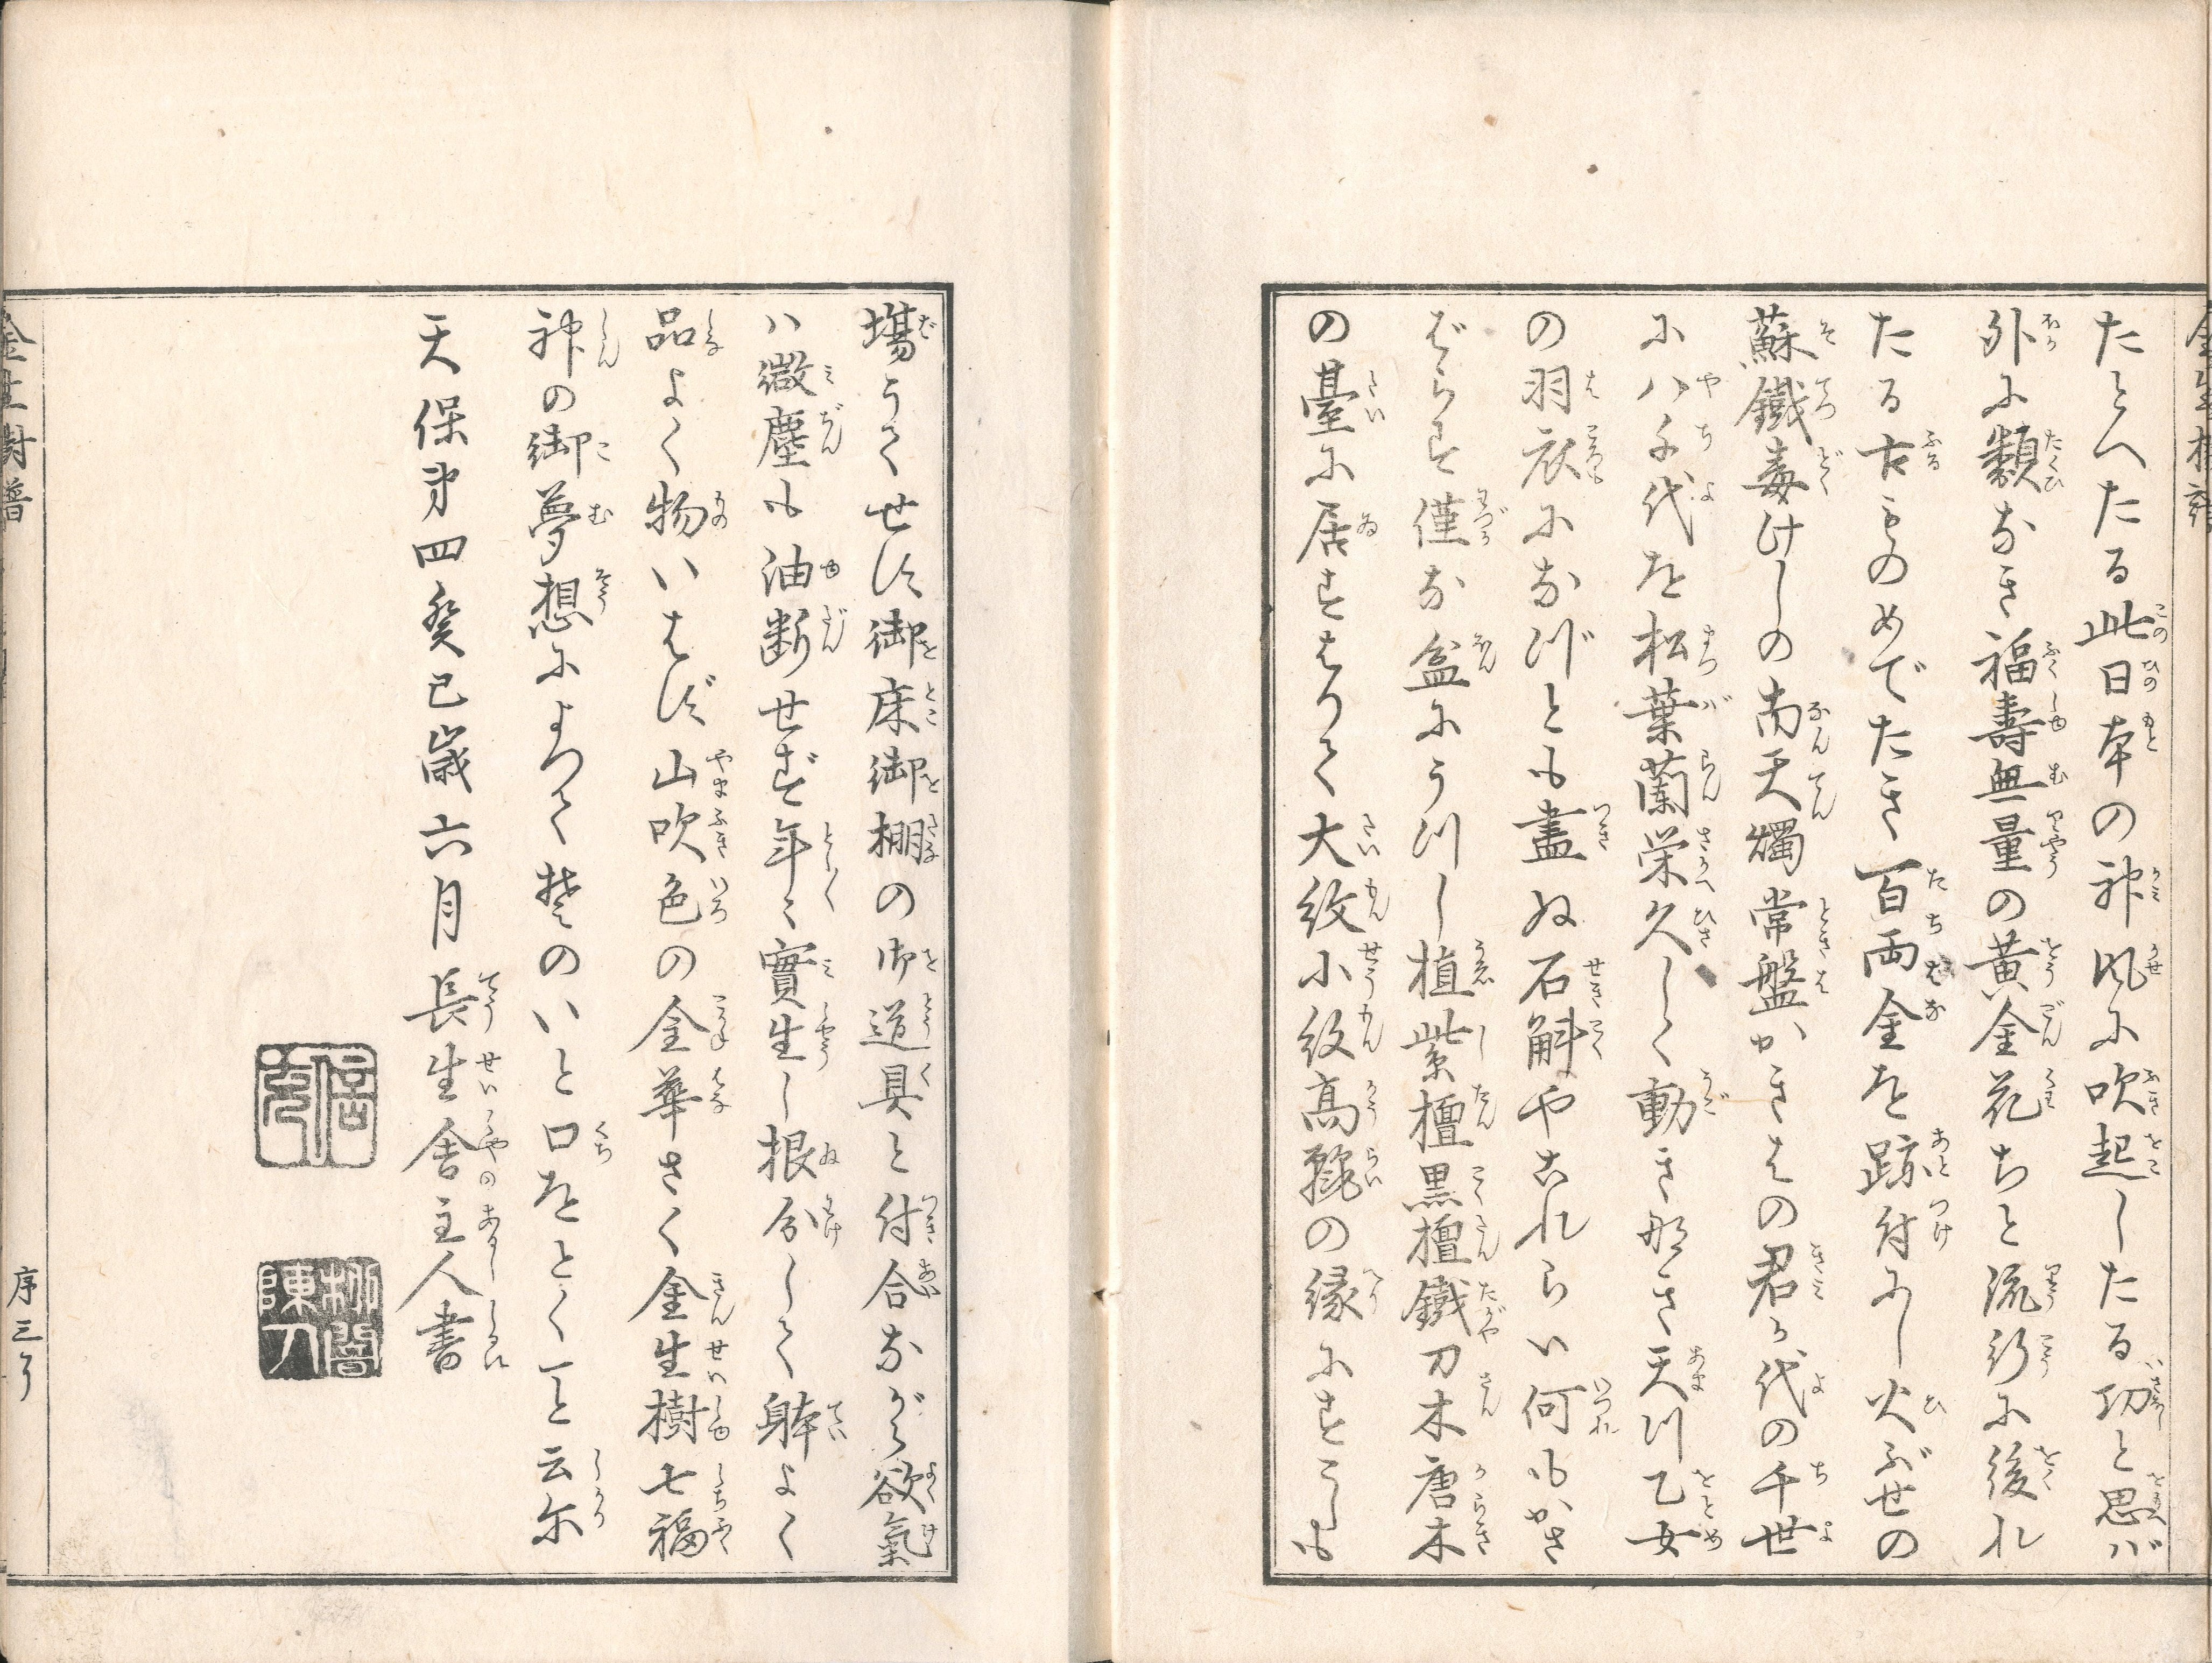 たとへたる此日本の神風に吹起したる功と思バ
外に類なき福壽無量の黄金花ちと流行に後れ
たる古ものめでたき百両金を跡付にし火ぶせの
蘇鐵毒けしの南天燭常盤かきはの君が代の千世
に八千代を松葉蘭栄久しく動き那き天川乙女
の羽衣になづとも盡ぬ石斛やこれらハ何もかさ
ばらず僅な盆にうつし植紫檀黒檀鐵刀木唐木
の臺に居ずはりて大紋小紋高麗の縁にすこしも
塲うてせず御床御棚の御道具と付合ながら欲氣
ハ微塵も油断せず年〻實生し根分して躰よく
品よく物いはず山吹色の金華さく金生樹七福
神の御夢想によつて其のいと口をとくこと云尓
天保第四癸巳歳六月 長生舎主人書
金生樹譜
序三了